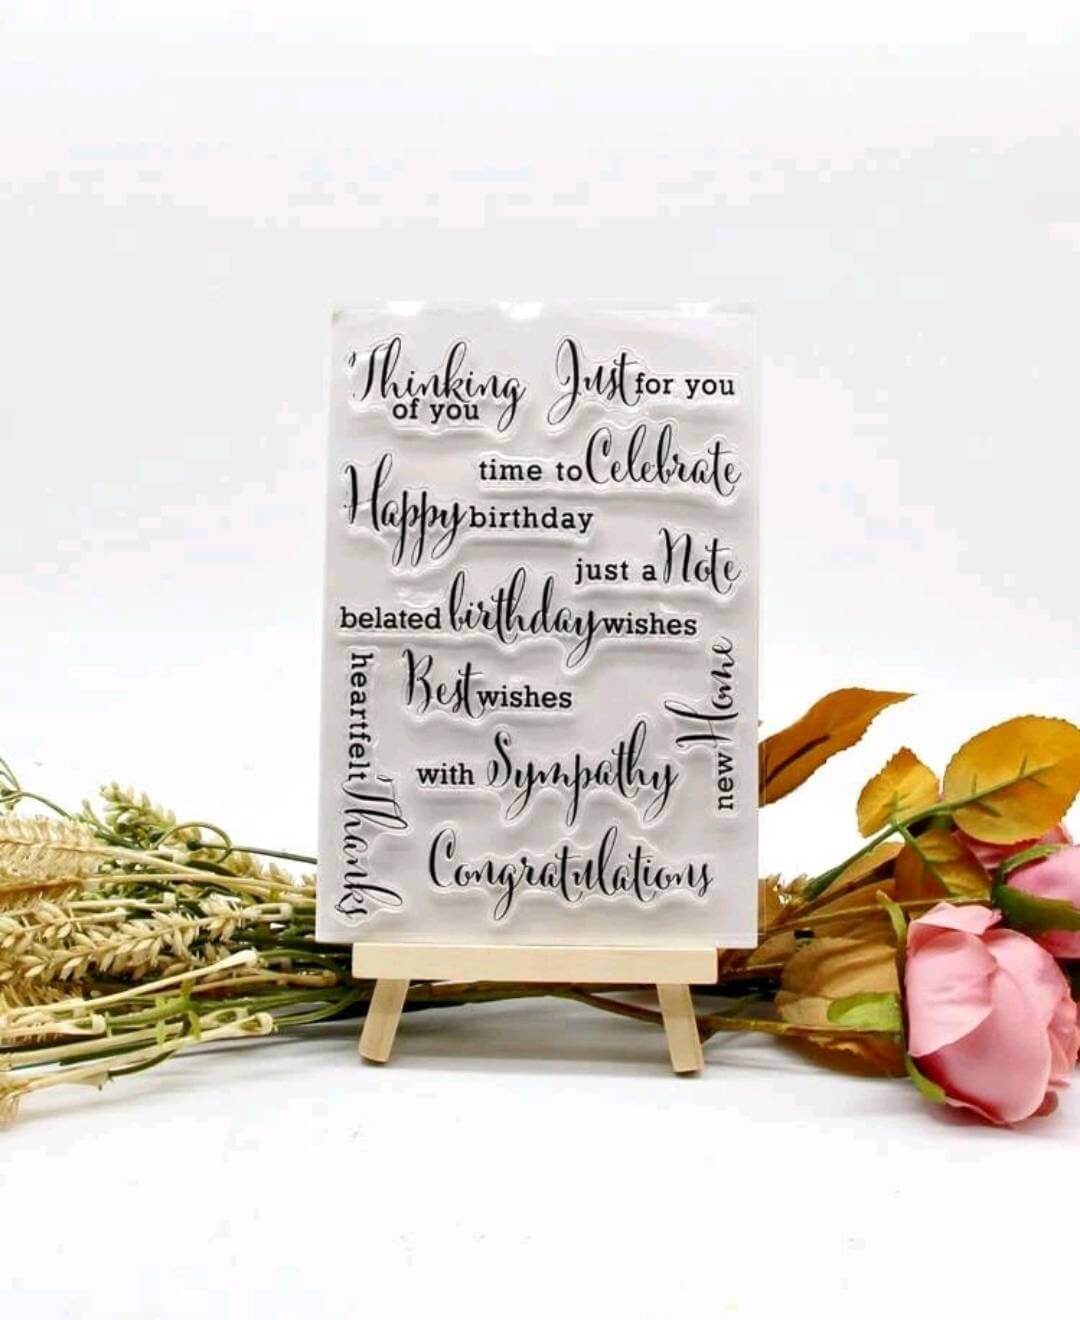 Thinking
of you
Just for you
time to Celebrate
Happy birthday
just a Note
belated birthday wishes
Best wishes
heartfelt Thanks
new Home
with Sympathy
Congratulations